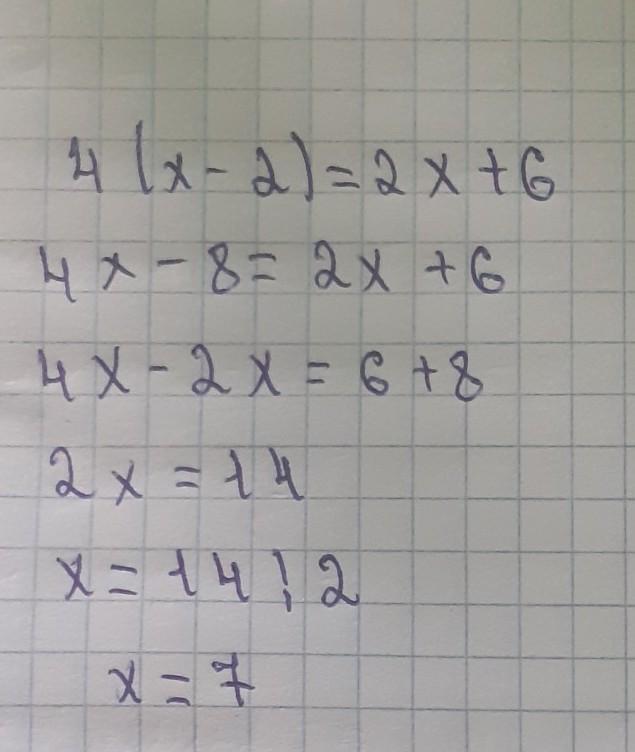 4(x-2)=2x+6
4x-8=2x+6
4x-2x=6+8
2x=14
x=14:2
x=7